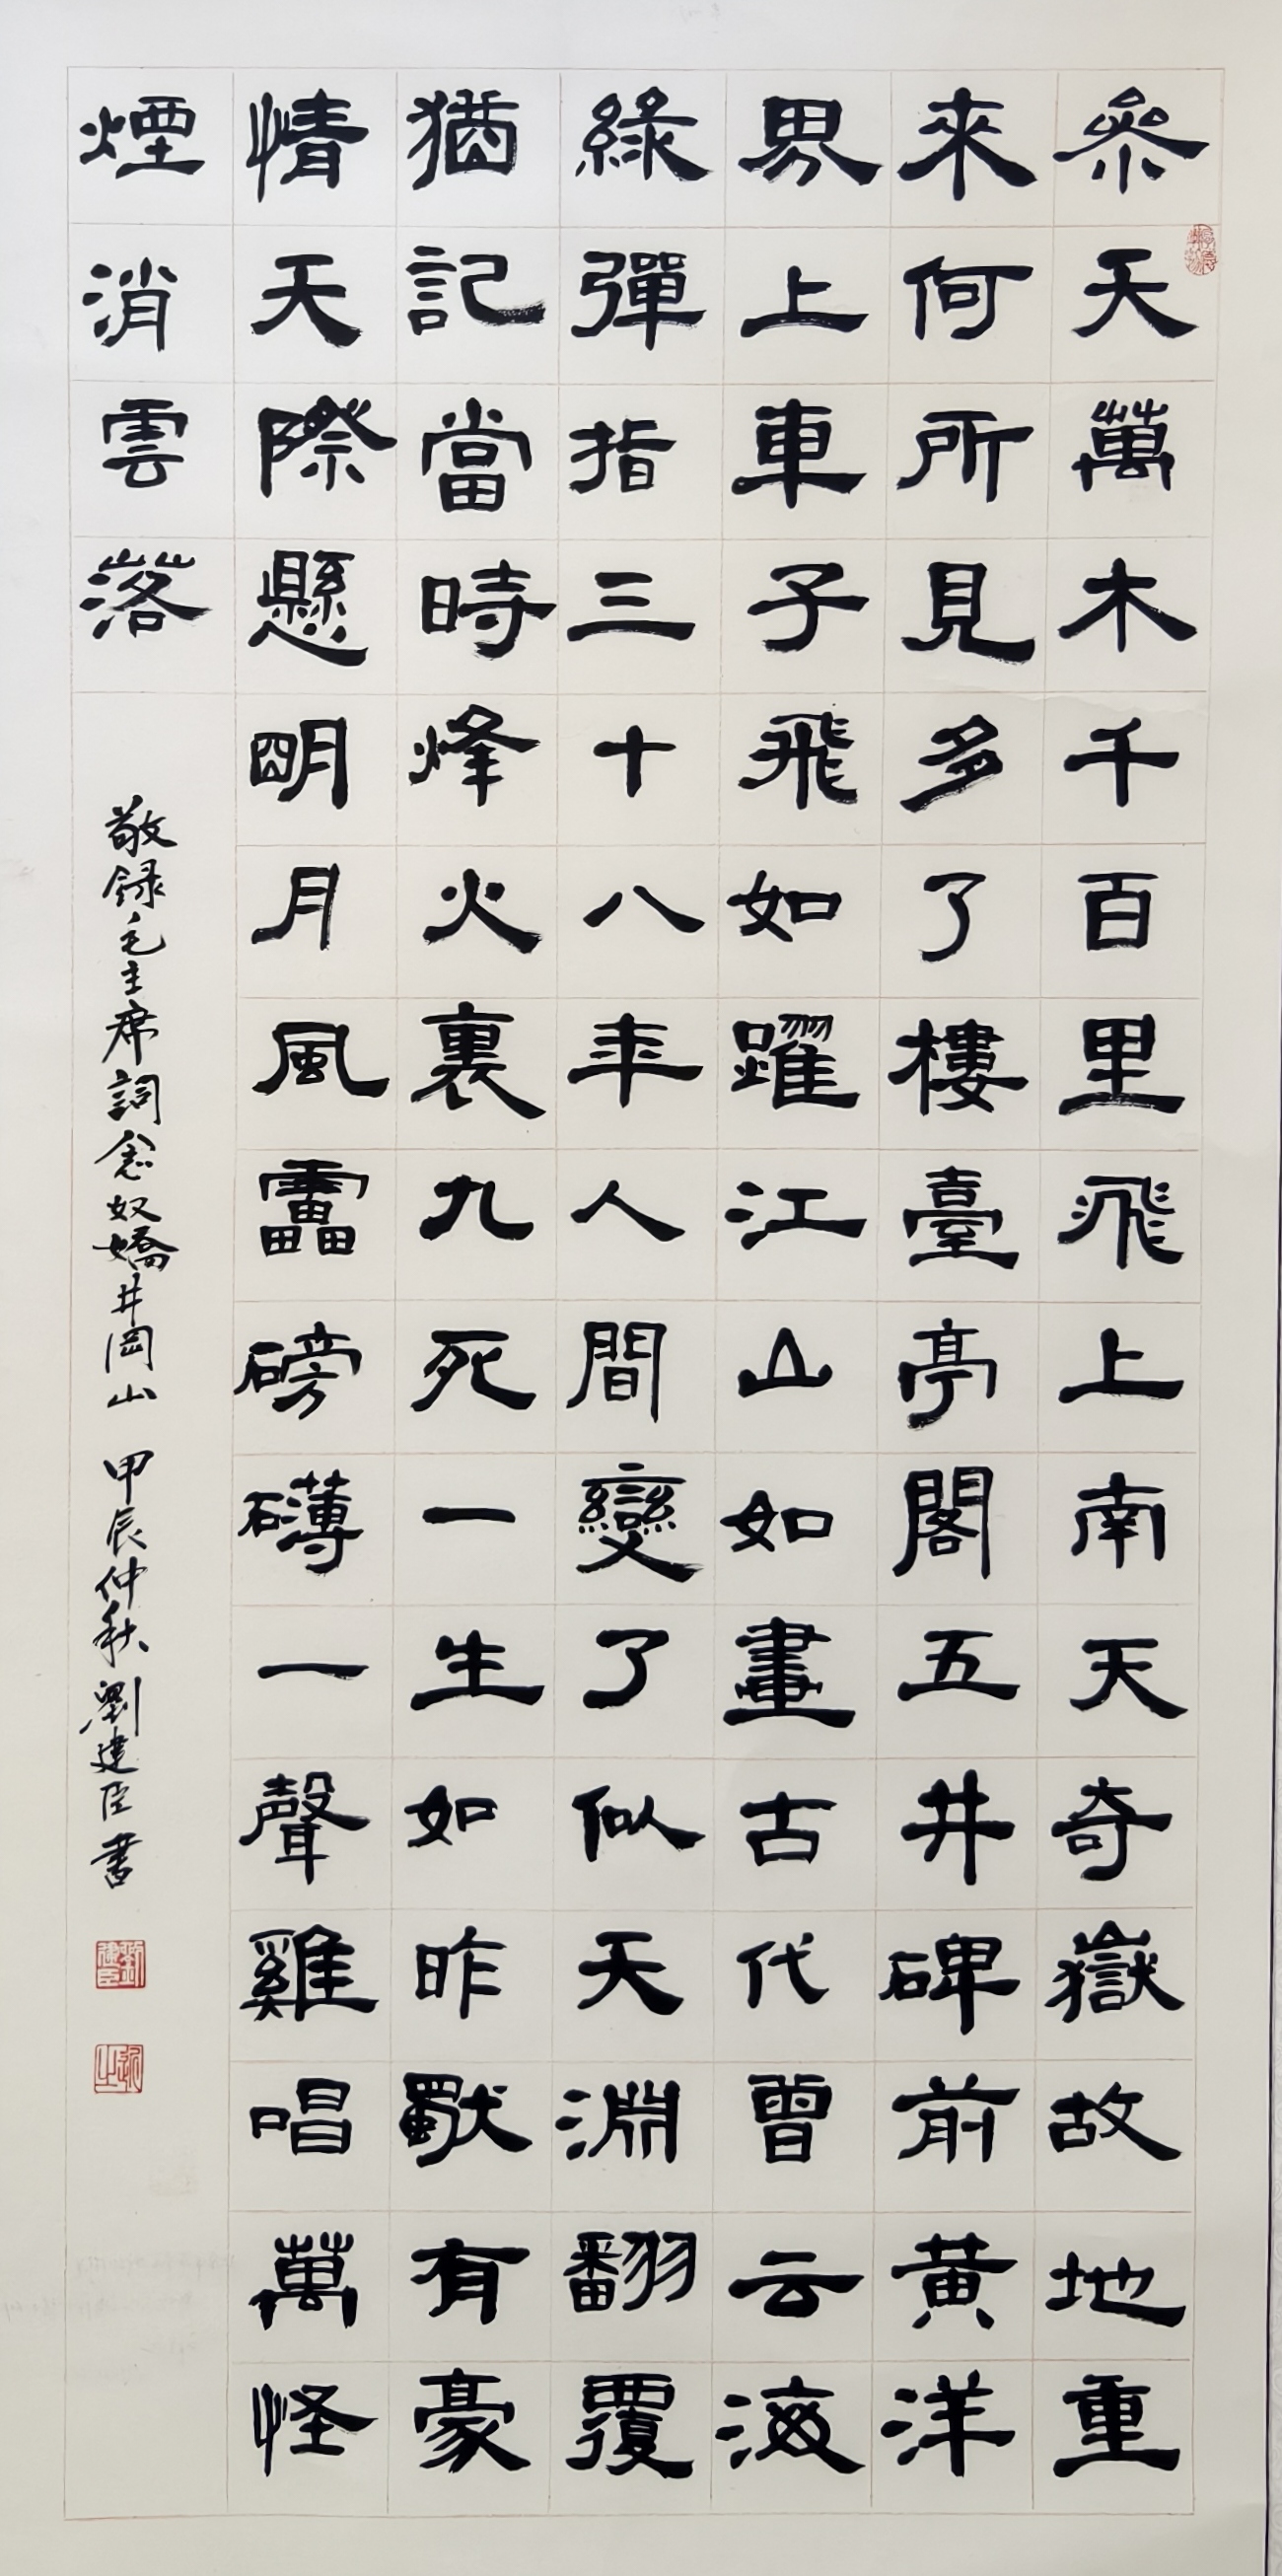 參天萬木千百里飛上南天奇嶽故地重
來何所見多了樓臺亭閣五井碑前黃洋
界上車子飛如躍江山如畫古代曾云海
綠彈指三十八年人間變了似天淵翻覆
猶記當時烽火裏九死一生如昨獸有豪
情天際懸明月風靁磅礴一聲雞唱萬怪
煙消雲落
敬録毛主席詞念奴嬌井岡山 甲辰仲秋 劉建臣書
劉建臣